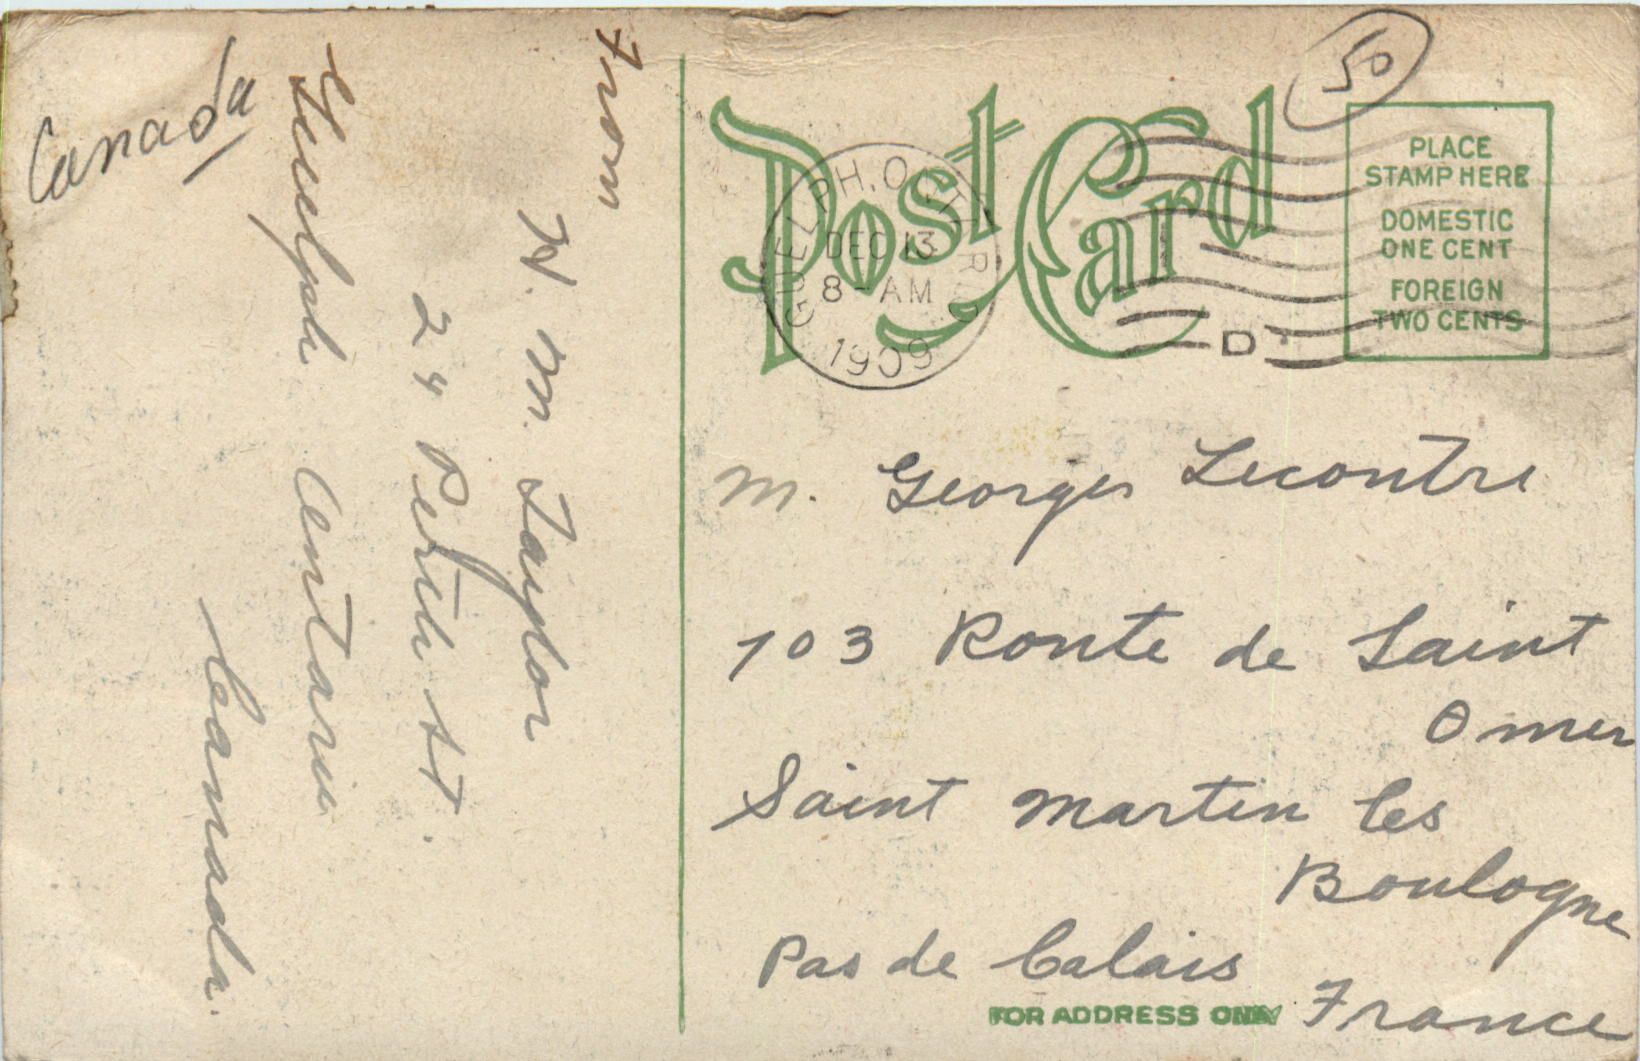 Canada
From
H. M. Taylor
24 Perth St.
Guelph Ontario
Canada.
Post Card
50
GUELPH, ONT
DEC 13
8 - AM
1909
D
PLACE
STAMP HERE
DOMESTIC
ONE CENT
FOREIGN
TWO CENTS
M. Georges Lecontre
103 Route de Saint
Omer
Saint Martin les
Boulogne
Pas de Calais
France
FOR ADDRESS ONLY